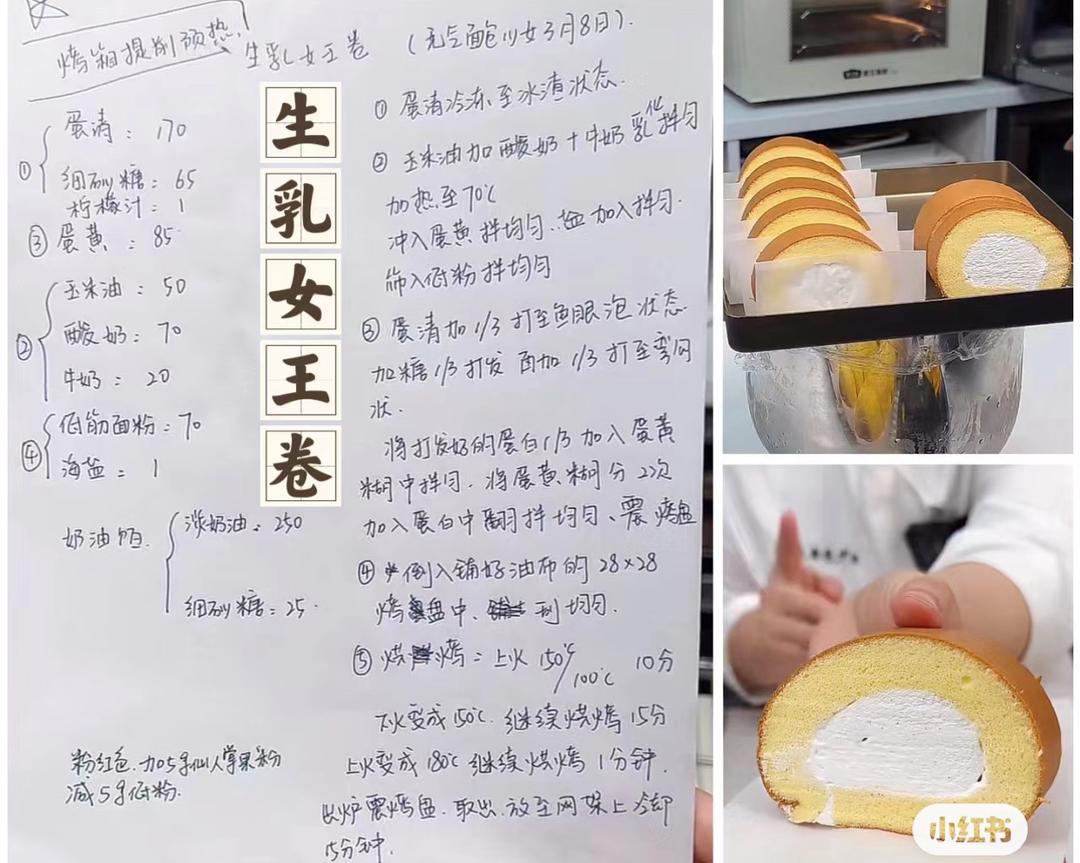 烤箱提前预热!
生乳女王卷 (元气面包少女3月8日).
① 蛋清: 170
细砂糖: 65
柠檬汁: 1
③ 蛋黄: 85
② 玉米油: 50
酸奶: 70
牛奶: 20
④ 低筋面粉: 70
海盐: 1
奶油馅 淡奶油: 250
细砂糖: 25
粉红色.加5g仙人掌果粉
减5g低粉.
生
乳
女
王
卷
① 蛋清冷冻至冰渣状态.
② 玉米油加酸奶+牛奶乳化拌匀
加热至70℃
冲入蛋黄拌均匀.盐加入拌匀.
筛入低粉拌均匀
③ 蛋清加1/3打至鱼眼泡状态
加糖1/3打发 再加1/3打至弯勾
状.
将打发好的蛋白1/3加入蛋黄
糊中拌匀.将蛋黄糊分2次
加入蛋白中翻拌均匀、震烤盘
④ 倒入铺好油布的28×28
烤盘中.刮均匀.
⑤ 烘烤=上火150℃/100℃ 10分
下火变成150℃.继续烘烤15分
上火变成180℃继续烘烤1分钟.
出炉震烤盘.取出.放至网架上冷却
15分钟.
小红书